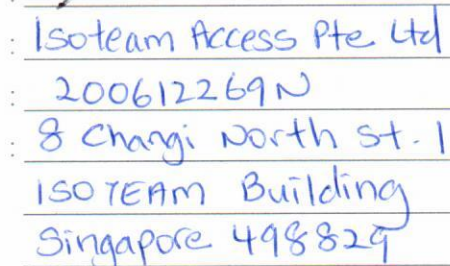 : Isoteam Access Pte Ltd
: 200612269N
: 8 Changi North St. 1
ISOTEAM Building
Singapore 498829